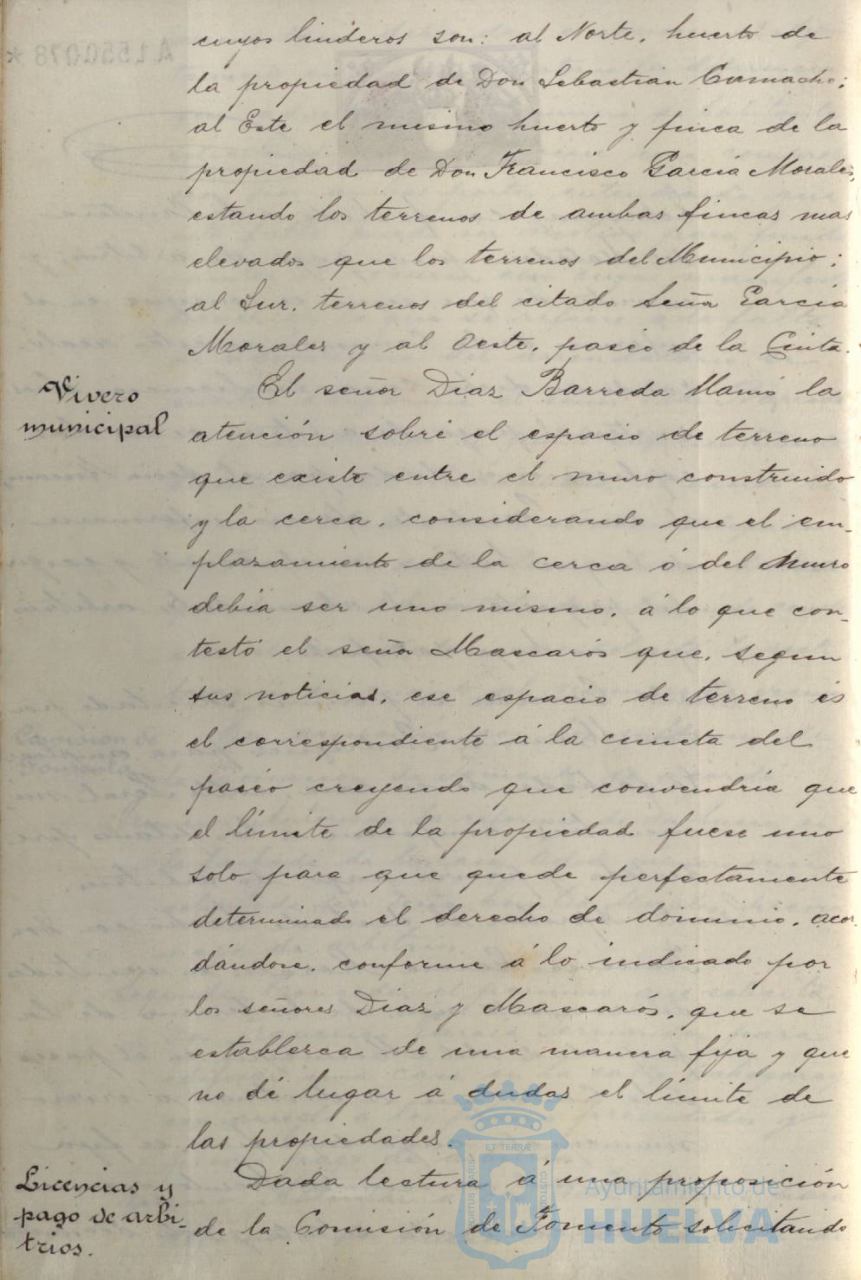 cuyos linderos son: al Norte, huerto de
la propiedad de Don Sebastián Camacho;
al Este el mismo huerto y finca de la
propiedad de Don Francisco García Morales,
estando los terrenos de ambas fincas mas
elevados que los terrenos del Municipio;
al Sur, terrenos del citado Señor García
Morales y al Oeste, paseo de la Cinta.
Vivero
municipal
El señor Diaz Barreda llamó la
atención sobre el espacio de terreno
que existe entre el muro construido
y la cerca, considerando que el em-
plazamiento de la cerca ó del muro
debia ser uno mismo, á lo que con-
testó el señor Mascarós que, segun
sus noticias, ese espacio de terreno es
el correspondiente á la cuneta del
paseo creyendo que convendría que
el límite de la propiedad fuese uno
solo para que quede perfectamente
determinado el derecho de dominio, acor-
dándose, conforme á lo indicado por
los señores Diaz y Mascarós, que se
establezca de una manera fija y que
no dé lugar á dudas el límite de
las propiedades.
Licencias y
pago de arbi-
trios.
Dada lectura á una proposición
de la Comisión de Fomento solicitando
Ayuntamiento de
HUELVA
A1550078 *